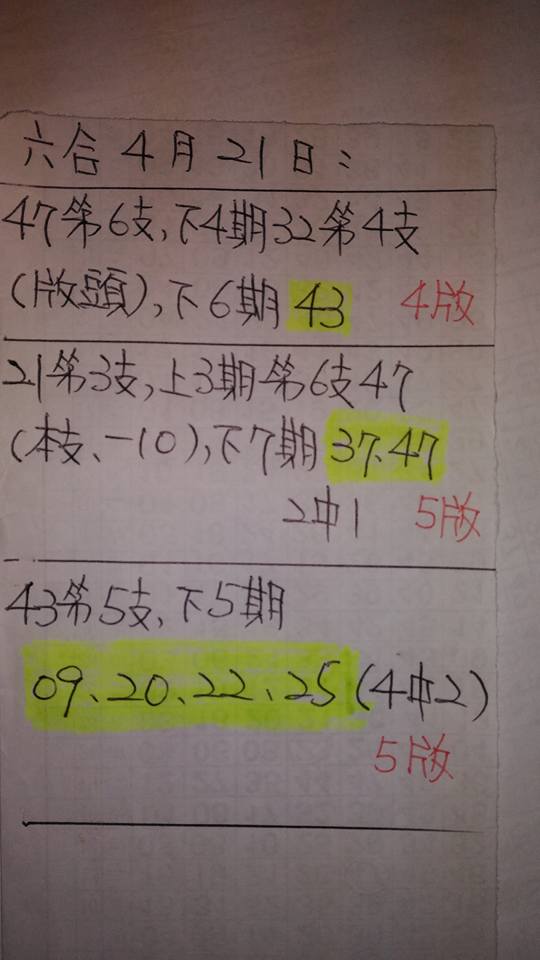 六合4月21日:
47第6支,下4期32第4支
(版頭),下6期43 4版
21第3支,上3期第6支47
(本支、-10),下7期37、47
2中1 5版
43第5支,下5期
09、20、22、25(4中2)
5版